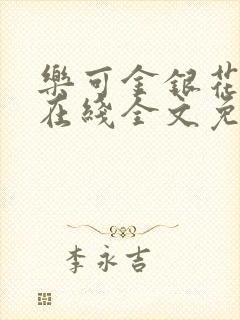 樂可金銀花
在綫全文免
李永吉